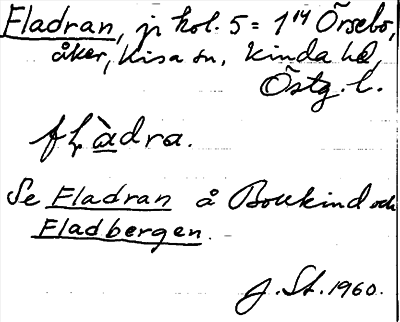 Fladran, ji kol. 5 = 1/4 Örsebo,
åker, Kisa sn, Kinda hd,
Östg. l.
flàdra.
Se Fladran å Boukind och
Fladbergen.
J. St. 1960.